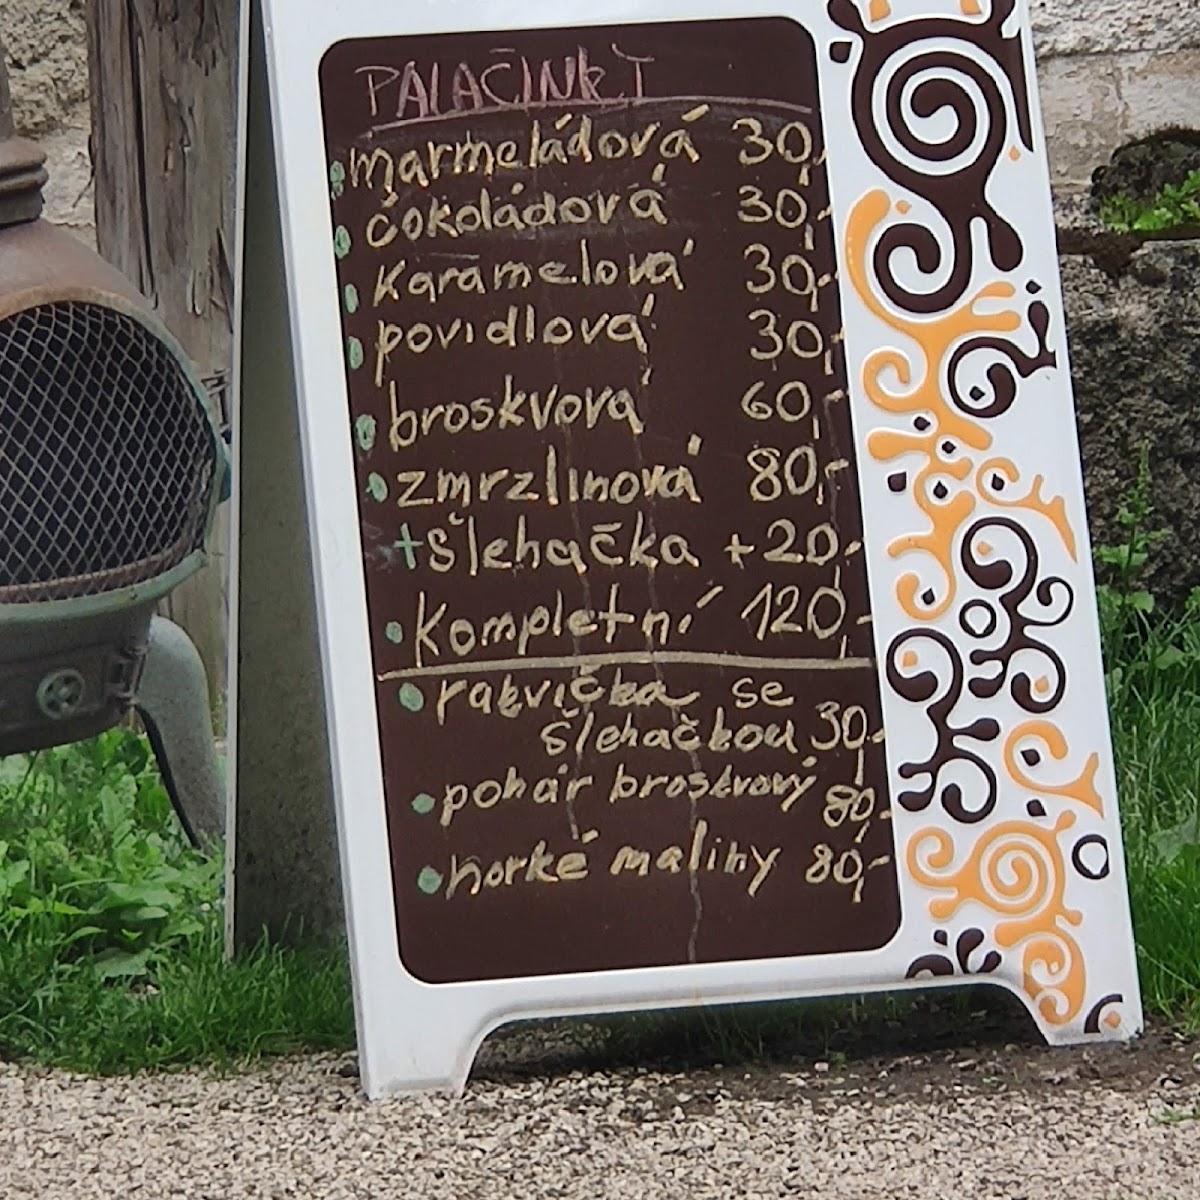 PALAČINKY
marmeládová 30,-
čokoládová 30,-
karamelová 30,-
povidlová 30,-
broskvová 60,-
zmrzlinová 80,-
+ šlehačka +20,-
kompletní 120,-
rakvička se
šlehačkou 30,-
pohár broskvový 80,-
horké maliny 80,-